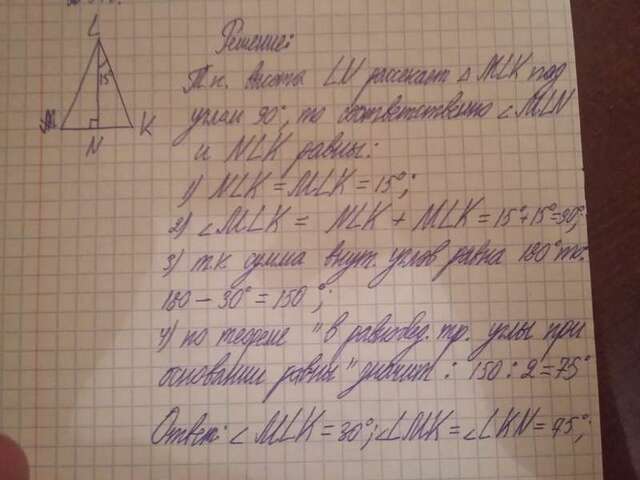 L
15°
M
N
K
Решение:
Т.к. высота LN рассекает △ MLK под
углом 90°, то соответственно ∠MLN
и NLK равны:
1) NLK = MLK = 15°;
2) ∠MLK = NLK + MLK = 15°+15°=30°;
3) т.к. сумма внут. углов равна 180° то:
180 – 30° = 150°;
4) по теореме "в равнобед. тр. углы при
основании равны" значит: 150 : 2 = 75°
Ответ: ∠MLK = 30°; ∠LMK = ∠LKN = 75°;